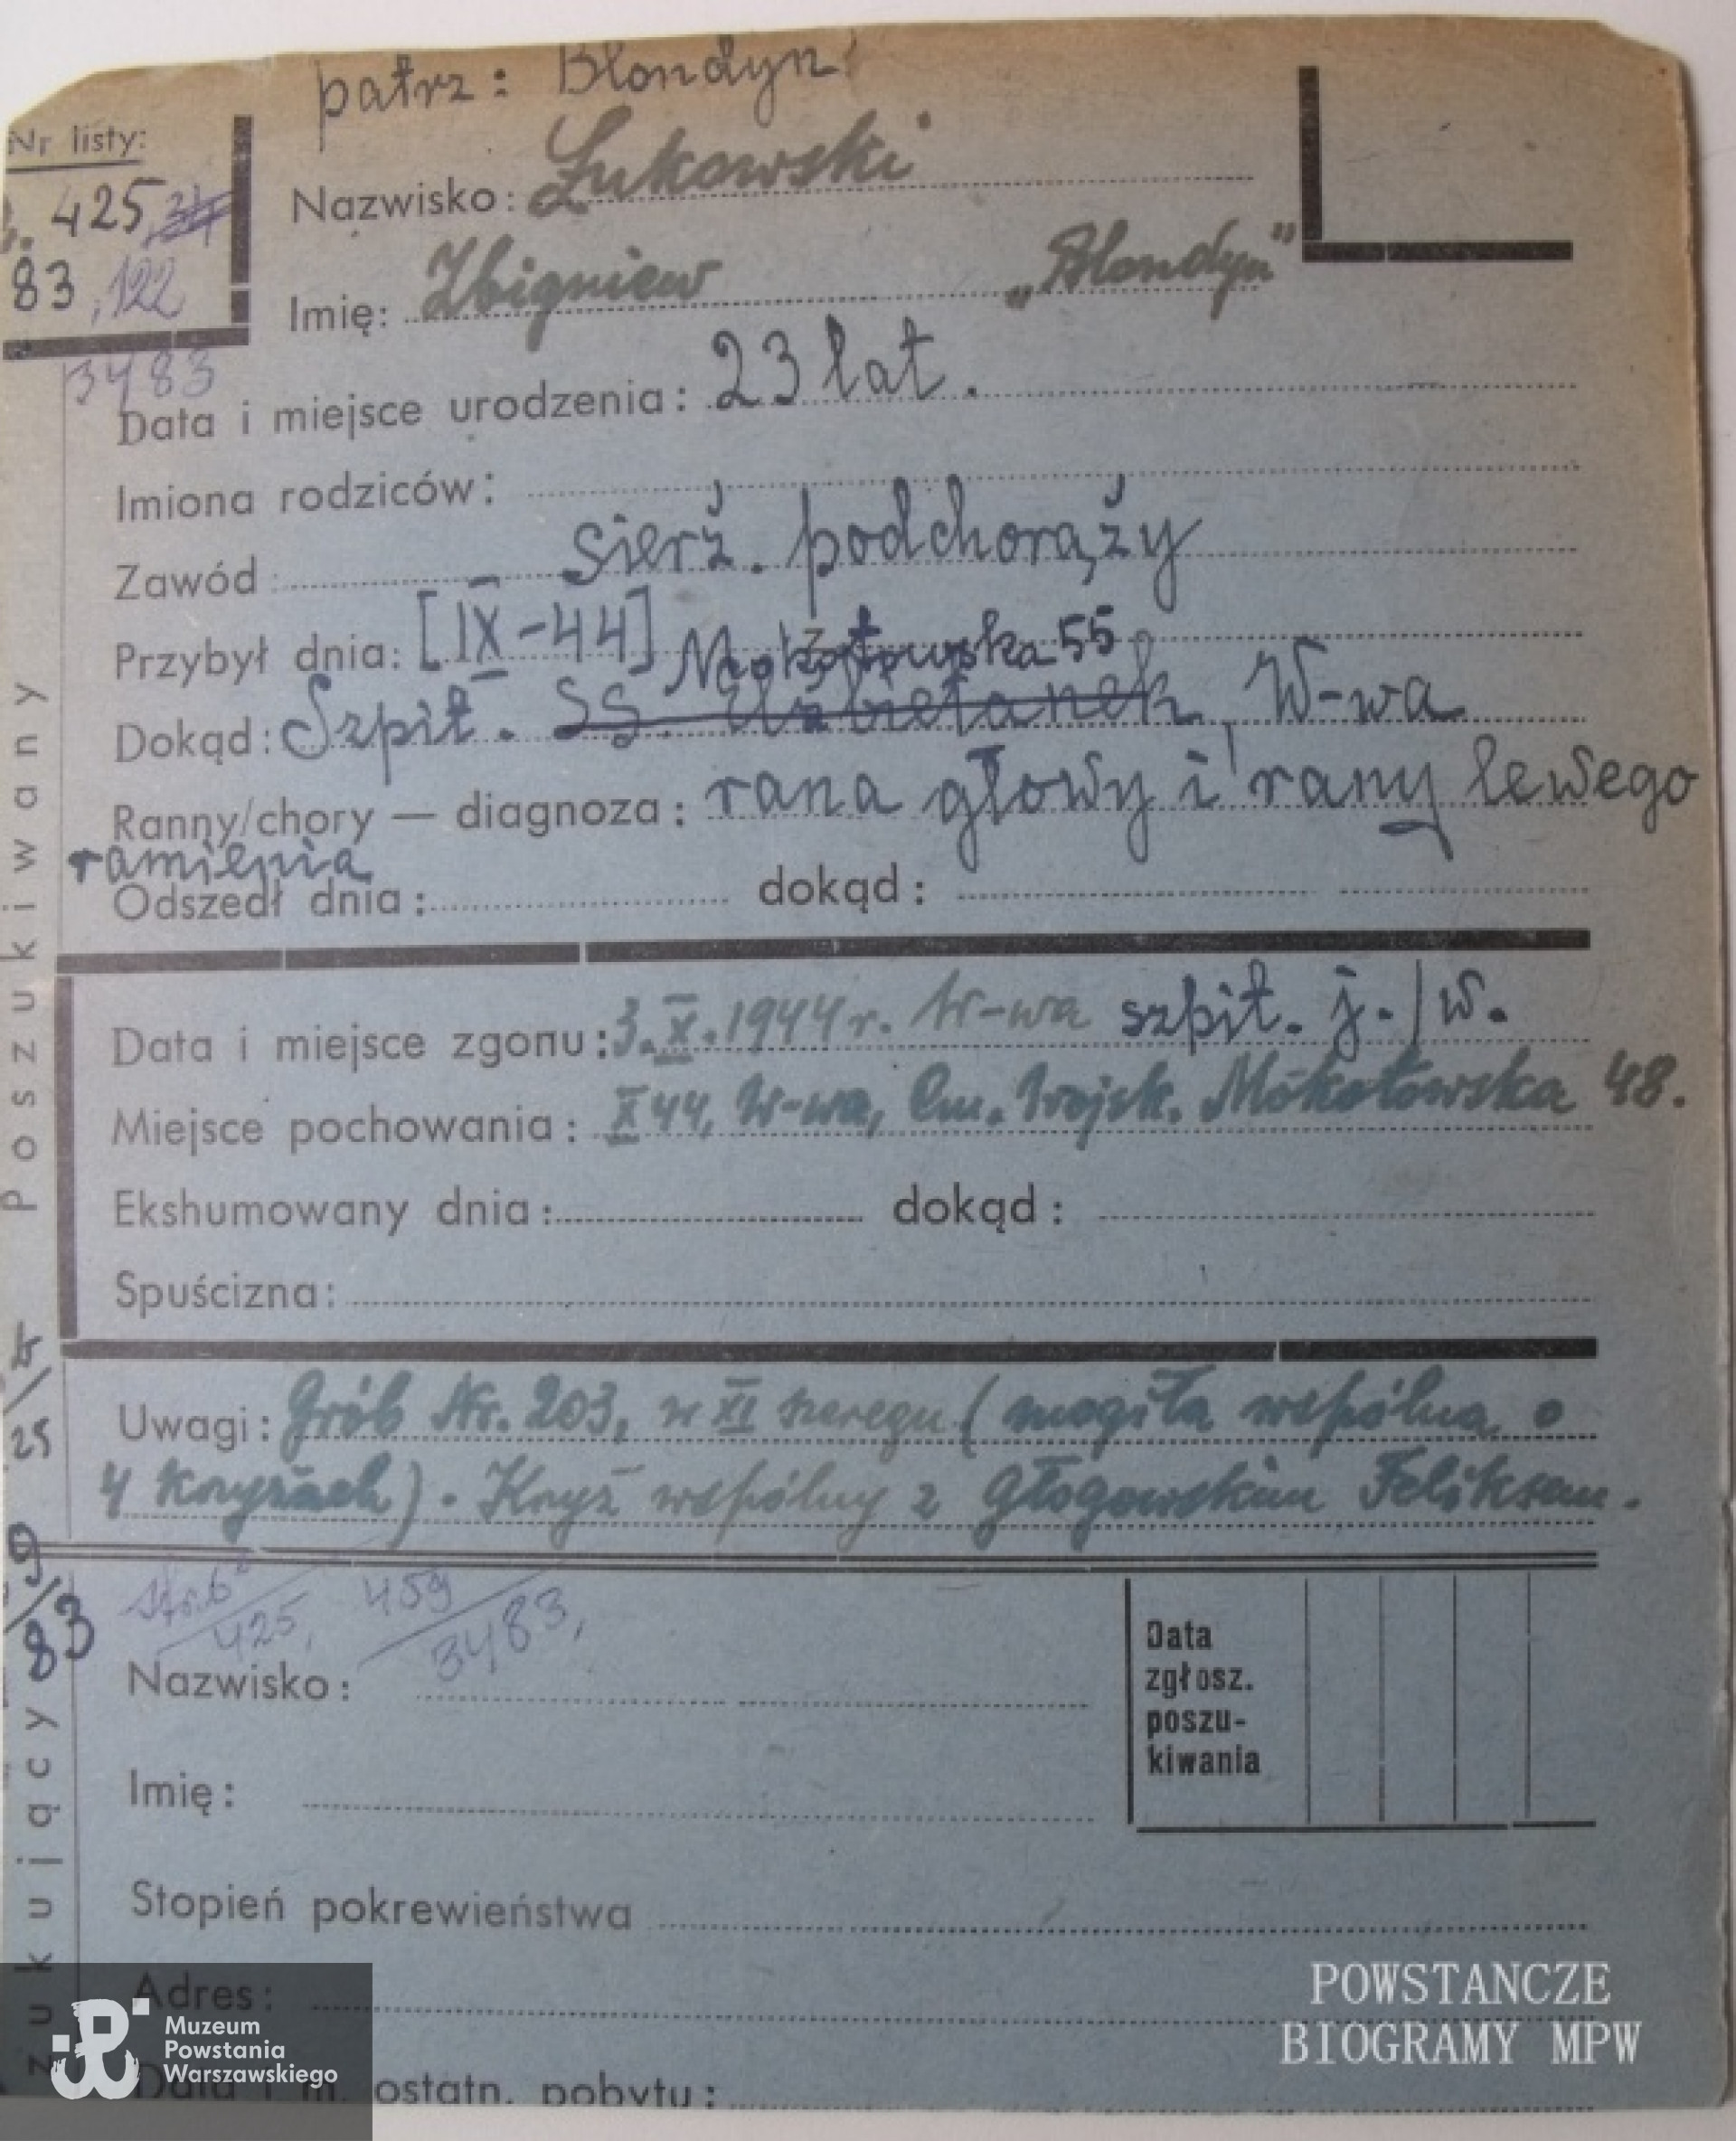 patrz: Blondyn
Nr listy:
425, 34
83, 122
3483
Nazwisko: Łukowski
Imię: Zbigniew „Blondyn”
Data i miejsce urodzenia: 23 lat.
Imiona rodziców:
Zawód: sierż. podchorąży
Przybył dnia: [IX-44] Mokotowska 55
Dokąd: Szpit. SS. Elżbietanek, W-wa
Ranny/chory — diagnoza: rana głowy i rany lewego
ramienia
Odszedł dnia: dokąd:
Poszukiwany
Data i miejsce zgonu: 3.X.1944 r. W-wa szpit. j./w.
Miejsce pochowania: X 44, W-wa, Cm. Wojsk. Mokotowska 48.
Ekshumowany dnia: dokąd:
Spuścizna:
Uwagi: Grób Nr. 203, w XI szeregu (mogiła wspólna o
4 krzyżach). Krzyż wspólny z Głogowskim Feliksem.
25
9/83
425, 459
3483,
Nazwisko:
Imię:
Data
zgłosz.
poszu-
kiwania
Stopień pokrewieństwa
Adres:
Data i m. ostatn. pobytu:
zukujący
Muzeum
Powstania
Warszawskiego
POWSTAŃCZE
BIOGRAMY MPW